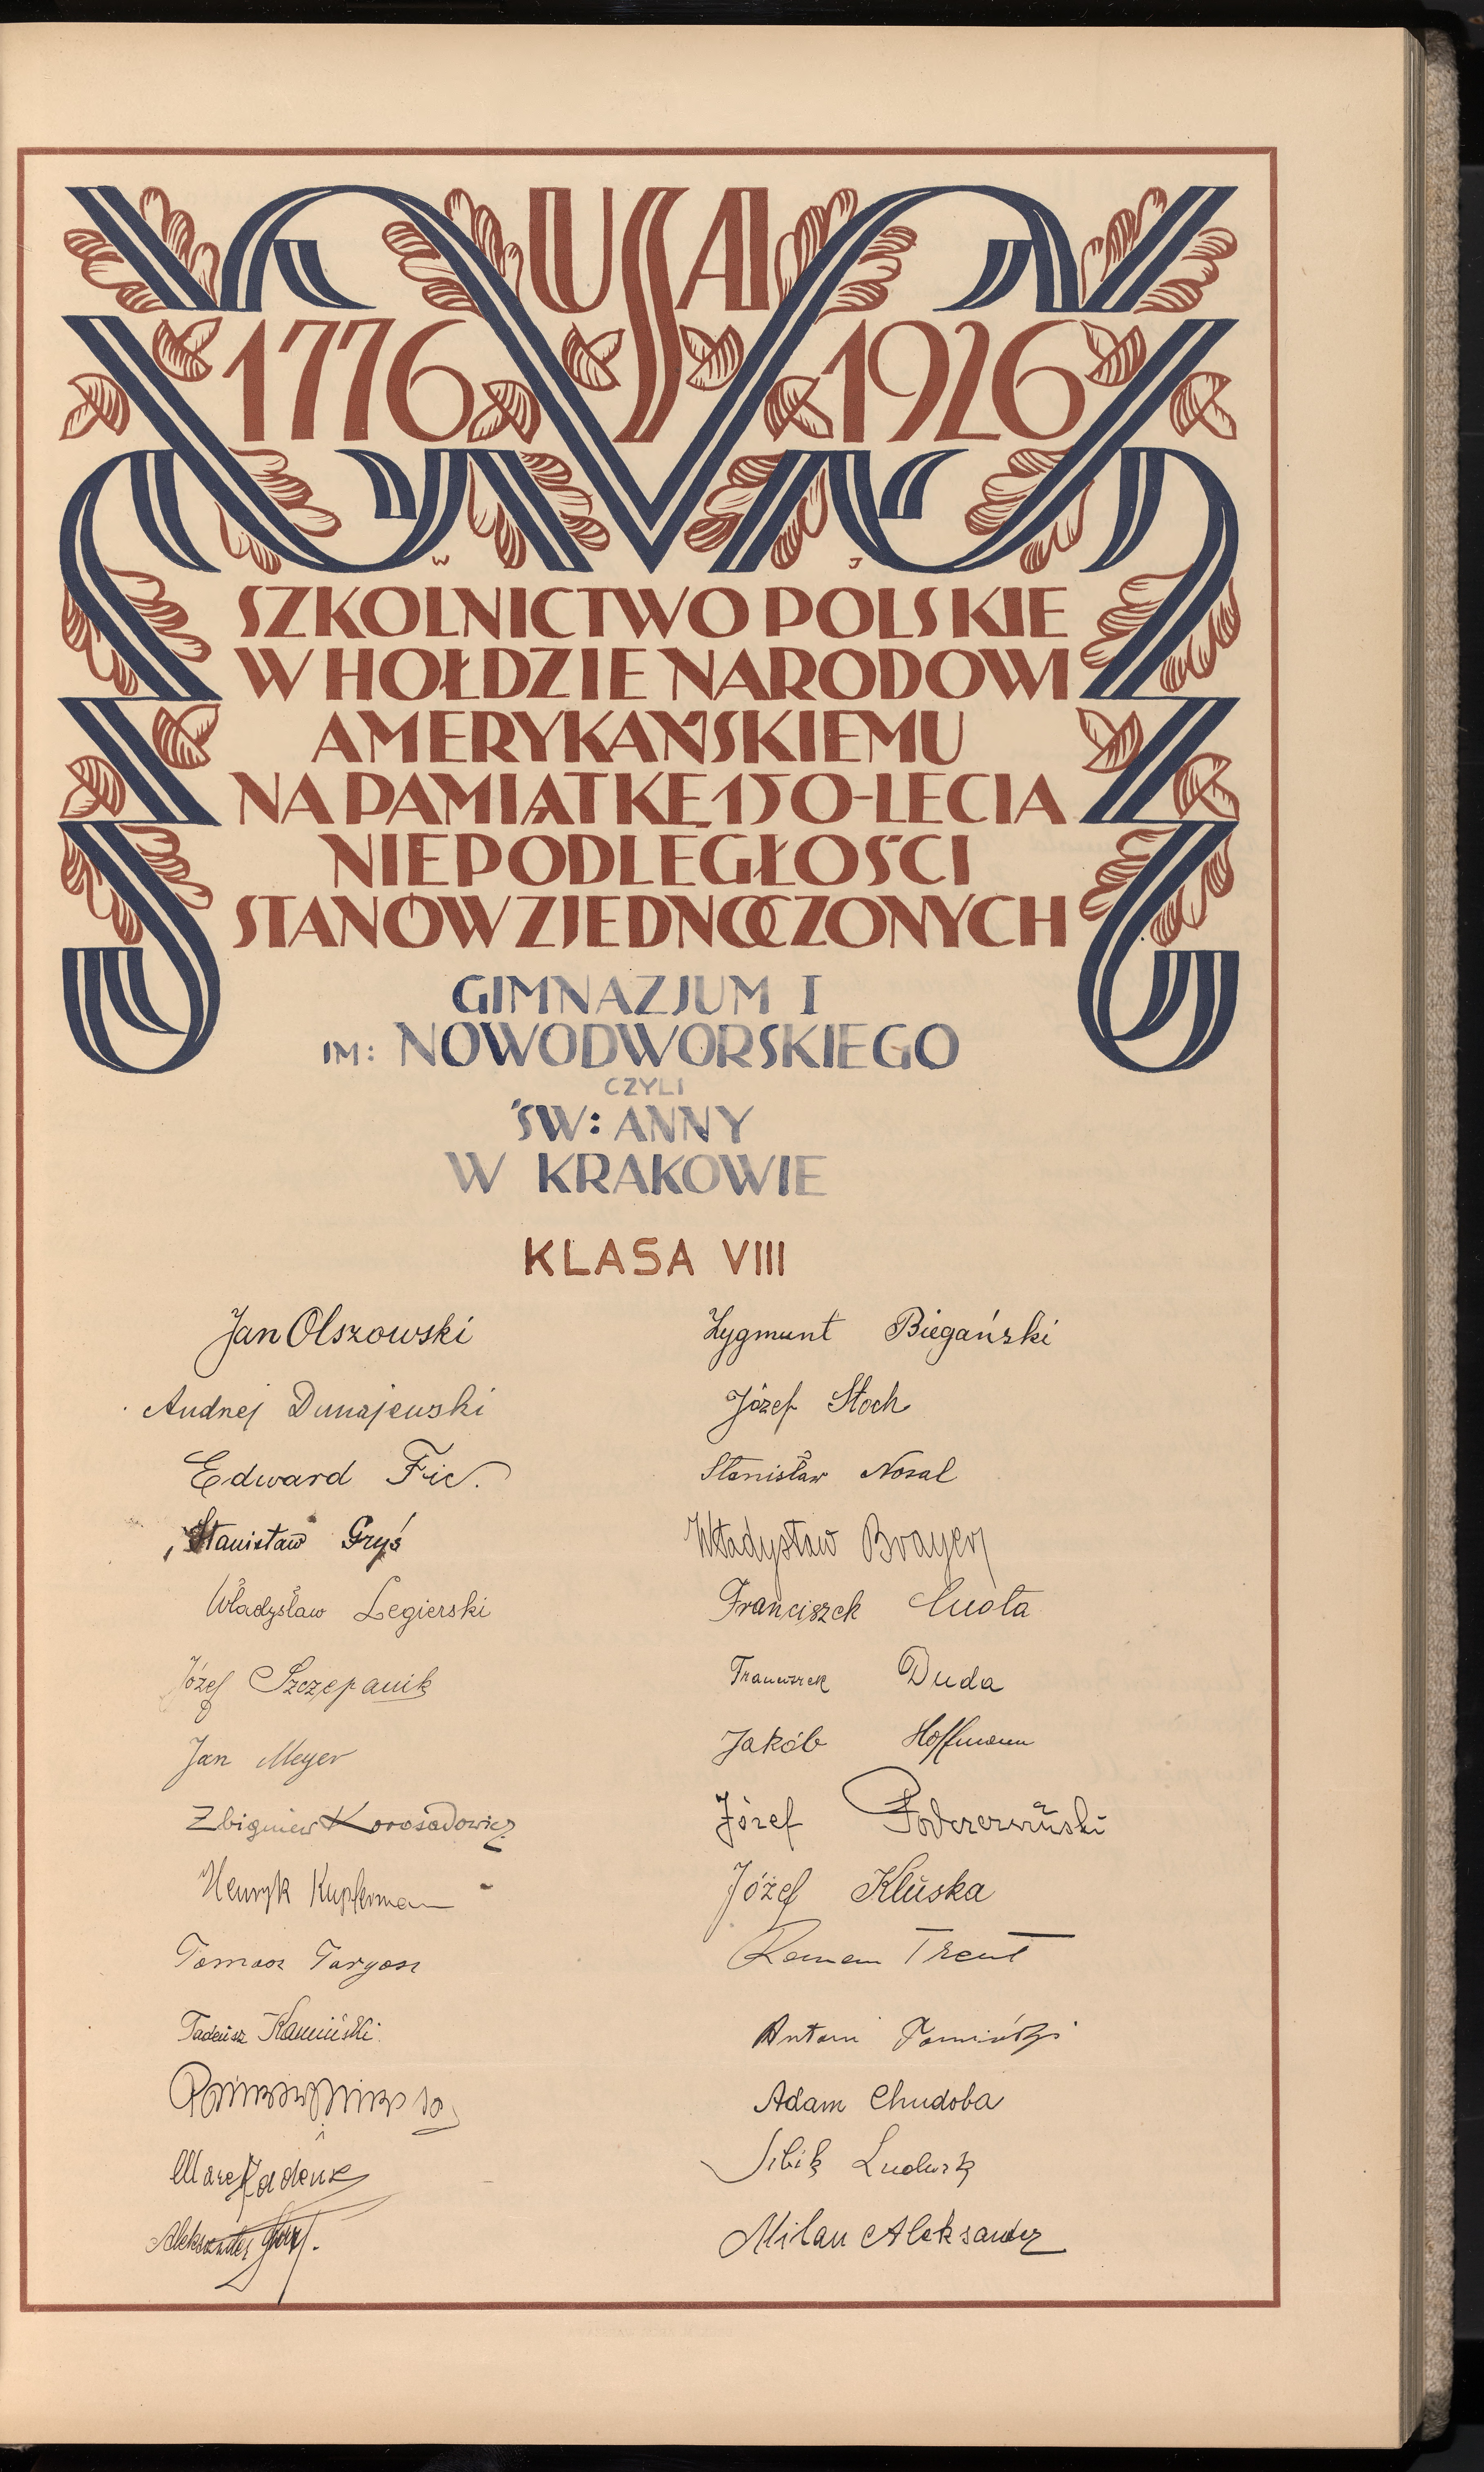 USA
1776 1926
W J
SZKOLNICTWO POLSKIE
W HOŁDZIE NARODOWI
AMERYKAŃSKIEMU
NA PAMIĄTKĘ 150-LECIA
NIEPODLEGŁOŚCI
STANÓW ZJEDNOCZONYCH
GIMNAZJUM I
IM: NOWODWORSKIEGO
CZYLI
ŚW: ANNY
W KRAKOWIE
KLASA VIII
Jan Olszowski
Andrzej Dunajewski
Edward Fic.
Stanisław Gryś
Władysław Legierski
Józef Szczepanik
Jan Meyer
Zbigniew Korosadowicz
Henryk Kupferman
Tomasz Targosz
Tadeusz Kamiński
Marek
Aleksander
Zygmunt Biegański
Józef Stoch
Stanisław Nosal
Władysław Brayer
Franciszek
Franciszek Duda
Jakób Hoffmann
Józef Podczerwiński
Józef Kluska
Roman Trent
Antoni
Adam Chudoba
Ludwik
Milan Aleksander